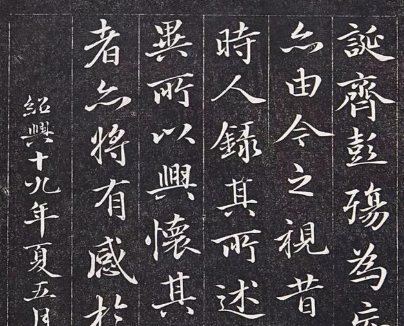 誕齊彭殤為
亦由今之視昔
時人錄其所述
異所以興懷其
者亦將有感於
紹興十九年夏五月